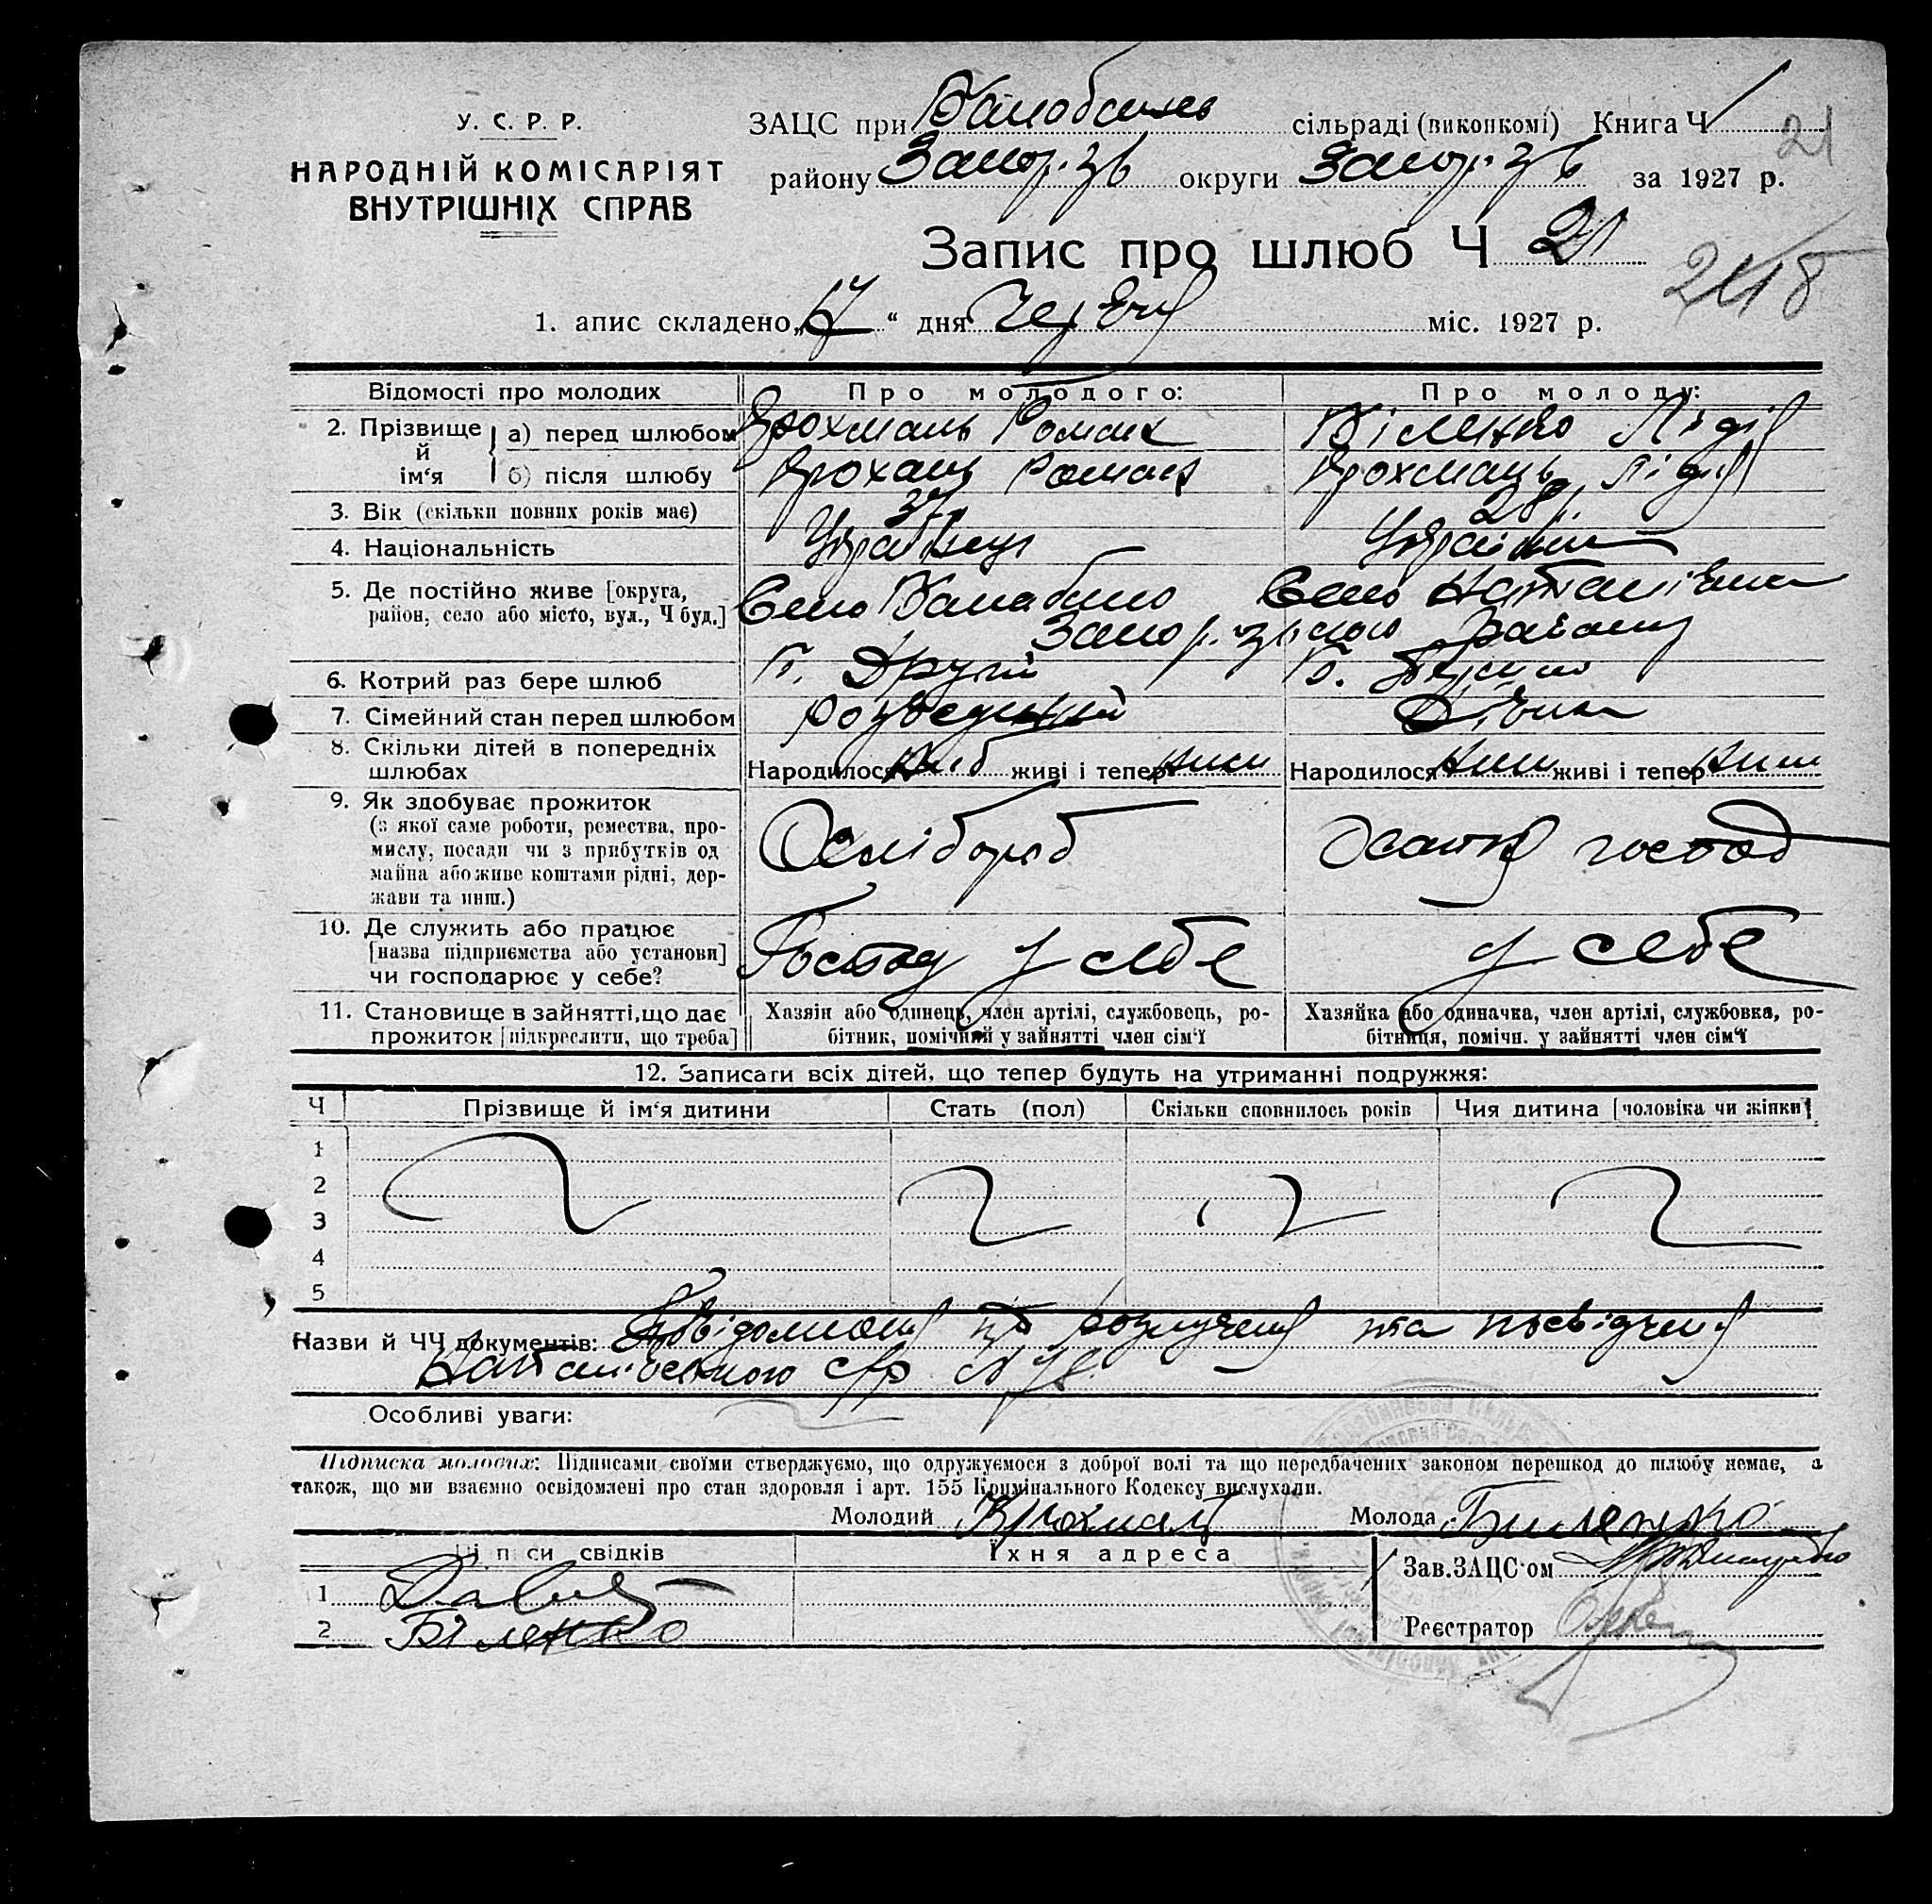 У. С. Р. Р.
НАРОДНІЙ КОМІСАРІЯТ
ВНУТРІШНІХ СПРАВ
ЗАЦС при сільраді (виконкомі) Книга Ч 1 21
району Запор. округи Запор. за 1927 р.
Запис про шлюб Ч 21
1. апис складено „17“ дня Червня міс. 1927 р.
Відомості про молодих Про молодого: Про молоду:
2. Прізвище й ім‘я
а) перед шлюбом Крохмаль Роман Біленко Лідія
б) після шлюбу Крохаль Роман Крохмаль Лідія
3. Вік (скільки повних років має) 37 28 р.
4. Національність Українец Українка
5. Де постійно живе [округа, район, село або місто, вул., Ч буд.] Село Село Наталівка
району
6. Котрий раз бере шлюб Другій
7. Сімейний стан перед шлюбом розведений Дівка
8. Скільки дітей в попередніх шлюбах Народилося живі і тепер Народилося живі і тепер
9. Як здобуває прожиток
(з якої саме роботи, ремества, про-
мислу, посади чи з прибутків од
майна або живе коштами рідні, дер-
жави та инш.)
Хлібороб Хатня господ
10. Де служить або працює
[назва підприємства або установи]
чи господарює у себе?
Господ у себе у себе
11. Становище в зайнятті, що дає
прожиток [підкреслити, що треба]
Хазяін або одинець, член артілі, службовець, ро-
бітник, помічний у зайнятті член сім‘ї
Хазяйка або одиначка, член артілі, службовка, ро-
бітниця, помічн. у зайнятті член сім‘ї
12. Записати всіх дітей, що тепер будуть на утриманні подружжя:
Ч Прізвище й ім‘я дитини Стать (пол) Скільки сповнилось років Чия дитина [чоловіка чи жінки]
1
2
3
4
5
Назви й ЧЧ документів: про розлучення та посвідчення
Наталівського с/р
Особливі уваги:
Підписка молодих: Підписами своїми стверджуємо, що одружуємося з доброї волі та що передбачених законом перешкод до шлюбу немає, а
також, що ми взаємно освідомлені про стан здоровля і арт. 155 Кримінального Кодексу вислухали.
Молодий Крохмаль Молода Биленко
Підписи свідків Їхня адреса
Зав.ЗАЦС‘ом
1
2 Біленко
Реєстратор